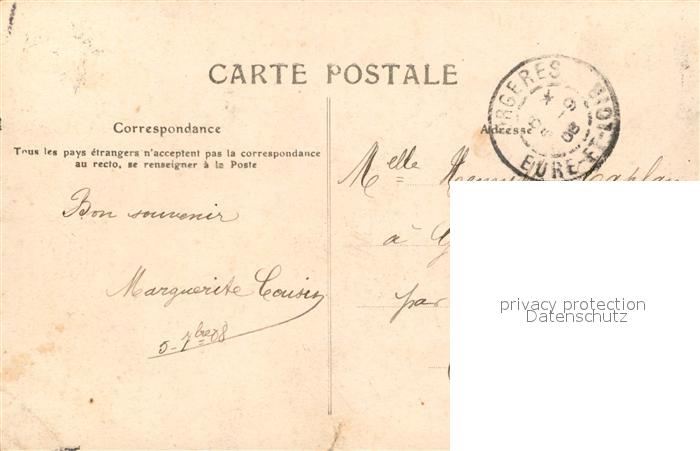 CARTE POSTALE
Correspondance
Tous les pays étrangers n'acceptent pas la correspondance
au recto, se renseigner à la Poste
Bon souvenir
Marguerite Cousin
5-7bre 08
Adresse
EURE-ET-LOIR
Melle
à
par
privacy protection
Datenschutz